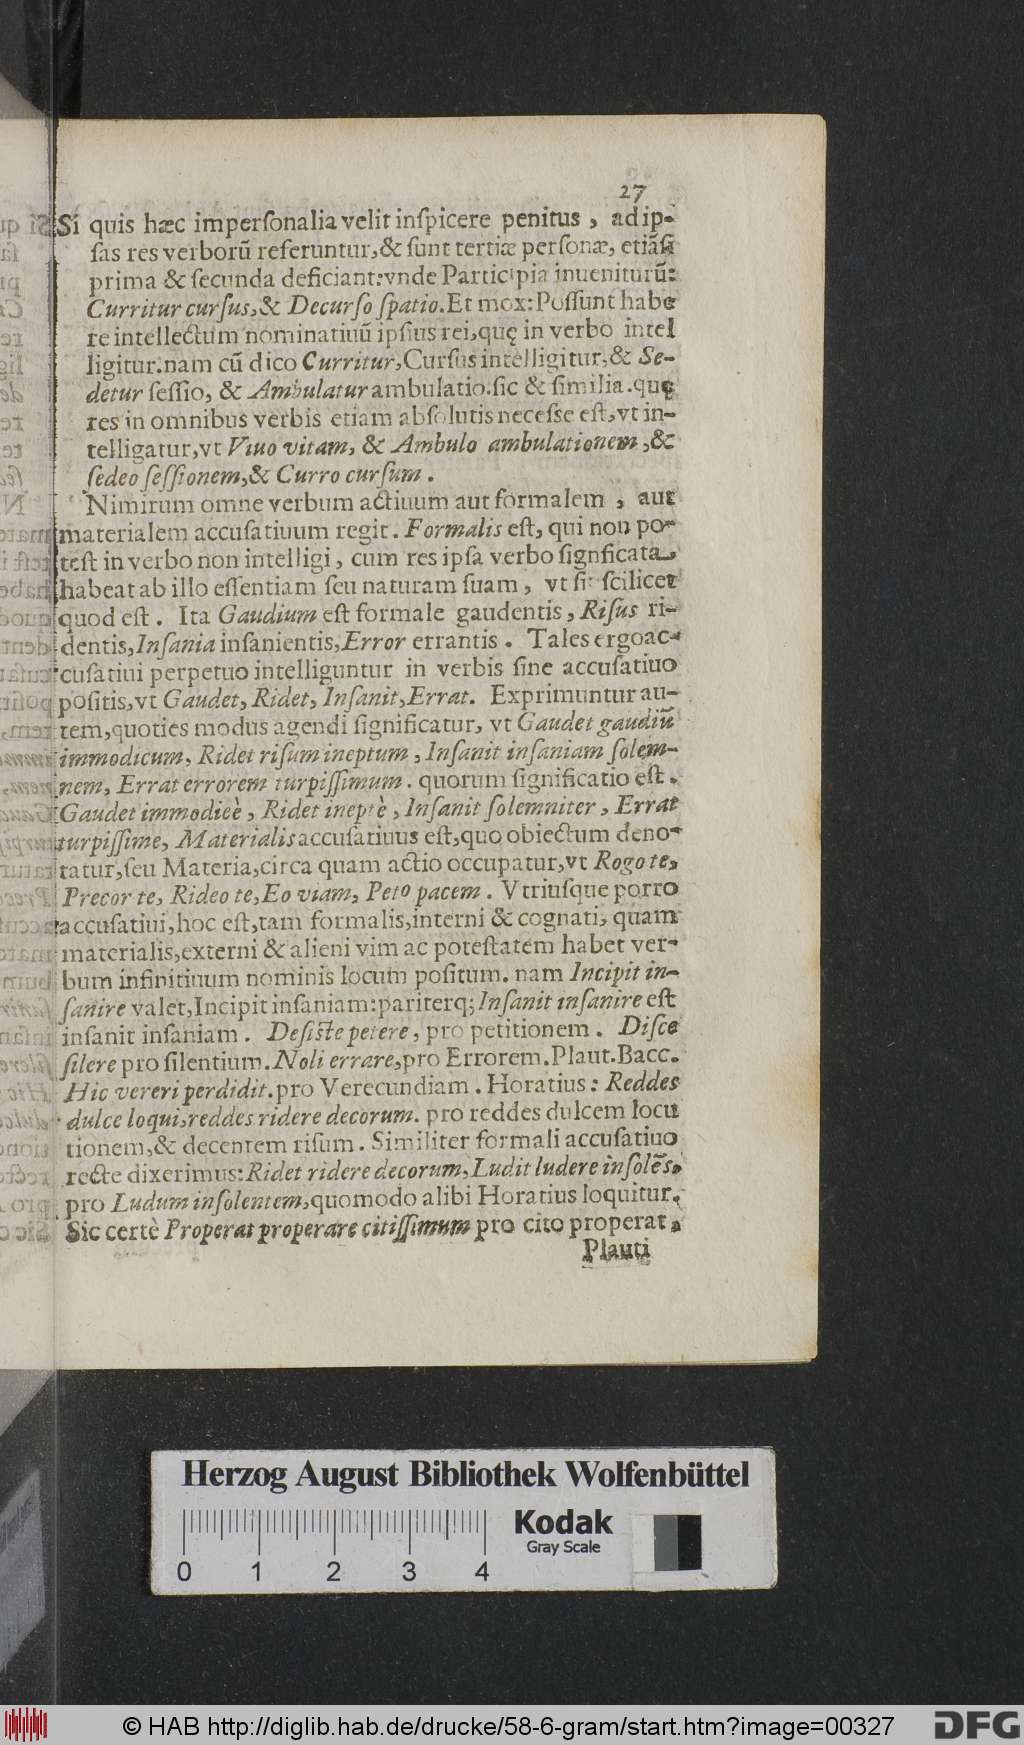 27
Si quis hæc imperſonalia velit inſpicere penitus, ad ip-
ſas res verborũ referuntur, & ſunt tertiæ perſonæ, etiãſi
prima & ſecunda deficiant: vnde Participia inueniturũ:
Curritur curſus, & Decurſo ſpatio. Et mox: Poſſunt habe
re intellectum nominatiuũ ipſius rei, quę in verbo intel
ligitur. nam cũ dico Curritur, Curſus intelligitur, & Se-
detur ſeſſio, & Ambulatur ambulatio. ſic & ſimilia. quę
res in omnibus verbis etiam abſolutis neceſſe eſt, vt in-
telligatur, vt Viuo vitam, & Ambulo ambulationem, &
ſedeo ſeſſionem, & Curro curſum.
Nimirum omne verbum actiuum aut formalem, aut
materialem accuſatiuum regit. Formalis eſt, qui non po-
teſt in verbo non intelligi, cum res ipſa verbo signficata,
habeat ab illo eſſentiam ſeu naturam ſuam, vt ſit ſcilicet
quod eſt. Ita Gaudium eſt formale gaudentis, Riſus ri-
dentis, Inſania inſanientis, Error errantis. Tales ergo ac-
cuſatiui perpetuo intelliguntur in verbis ſine accuſatiuo
poſitis, vt Gaudet, Ridet, Inſanit, Errat. Exprimuntur au-
tem, quoties modus agendi ſignificatur, vt Gaudet gaudiũ
immodicum, Ridet riſum ineptum, Inſanit inſaniam ſolem-
nem, Errat errorem turpiſſimum. quorum ſignificatio eſt.
Gaudet immodicè, Ridet ineptè, Inſanit ſolemniter, Errat
turpiſſime, Materialis accuſatiuus eſt, quo obiectum deno-
tatur, ſeu Materia, circa quam actio occupatur, vt Rogo te,
Precor te, Rideo te, Eo viam, Peto pacem. Vtriuſque porro
accuſatiui, hoc eſt, tam formalis, interni & cognati, quam
materialis, externi & alieni vim ac poteſtatem habet ver-
bum infinitiuum nominis locum poſitum. nam Incipit in-
ſanire valet, Incipit inſaniam: pariterq; Inſanit inſanire eſt
inſanit inſaniam. Deſiſte petere, pro petitionem. Diſce
ſilere pro ſilentium. Noli errare, pro Errorem. Plaut. Bacc.
Hic vereri perdidit. pro Verecundiam. Horatius: Reddes
dulce loqui, reddes ridere decorum. pro reddes dulcem locu
tionem, & decentem riſum. Similiter formali accuſatiuo
recte dixerimus: Ridet ridere decorum, Ludit ludere inſolẽs,
pro Ludum inſolentem, quomodo alibi Horatius loquitur.
Sic certè Properat properare citiſſimum pro cito properat.
Plauti
Herzog August Bibliothek Wolfenbüttel
Kodak
Gray Scale
0 1 2 3 4
© HAB http://diglib.hab.de/drucke/58-6-gram/start.htm?image=00327
DFG